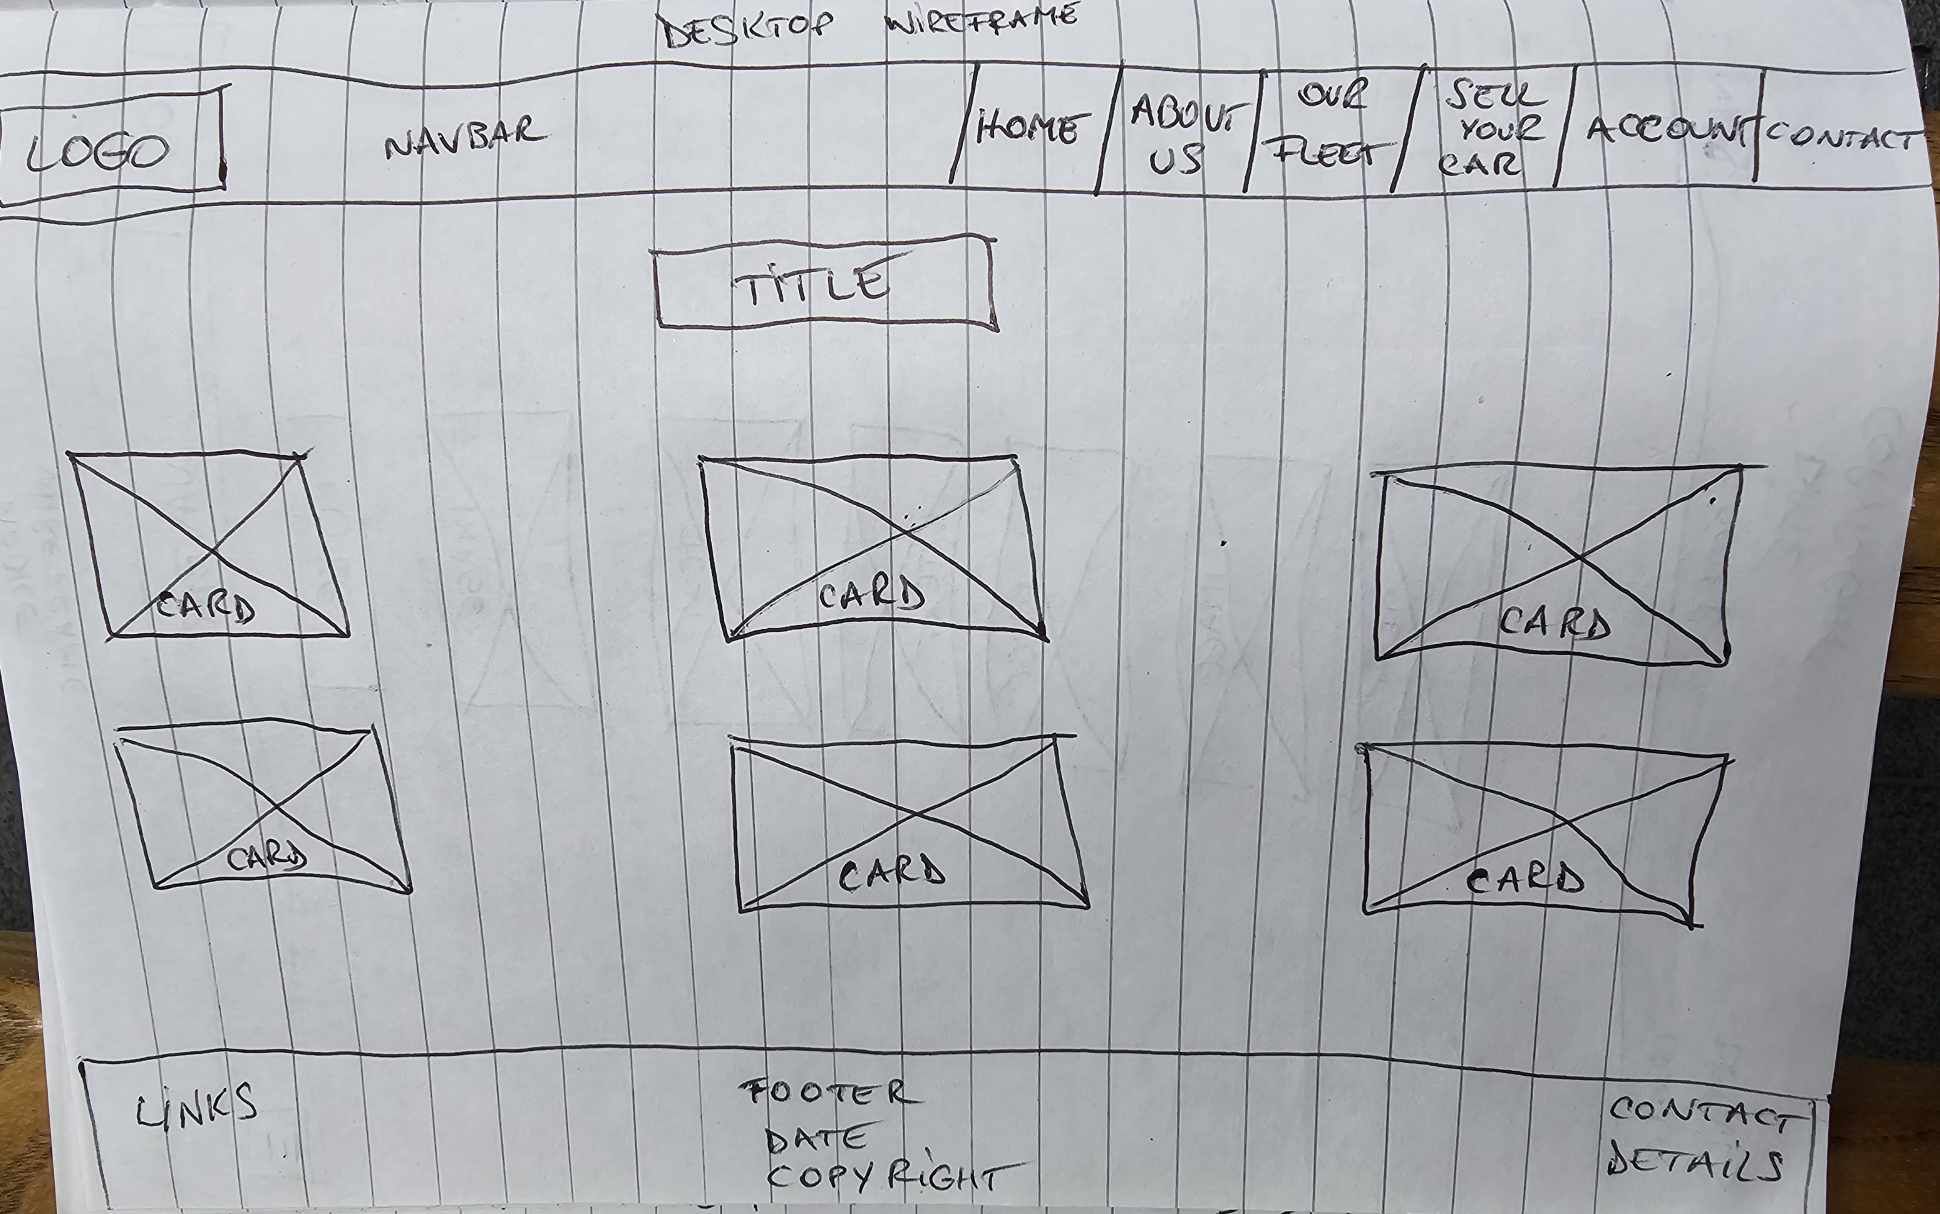 DESKTOP WIREFRAME
LOGO
NAVBAR
HOME
ABOUT
US
OUR
FLEET
SELL
YOUR
CAR
ACCOUNT
CONTACT
TITLE
CARD
CARD
CARD
CARD
CARD
CARD
LINKS
FOOTER
DATE
COPYRIGHT
CONTACT
DETAILS